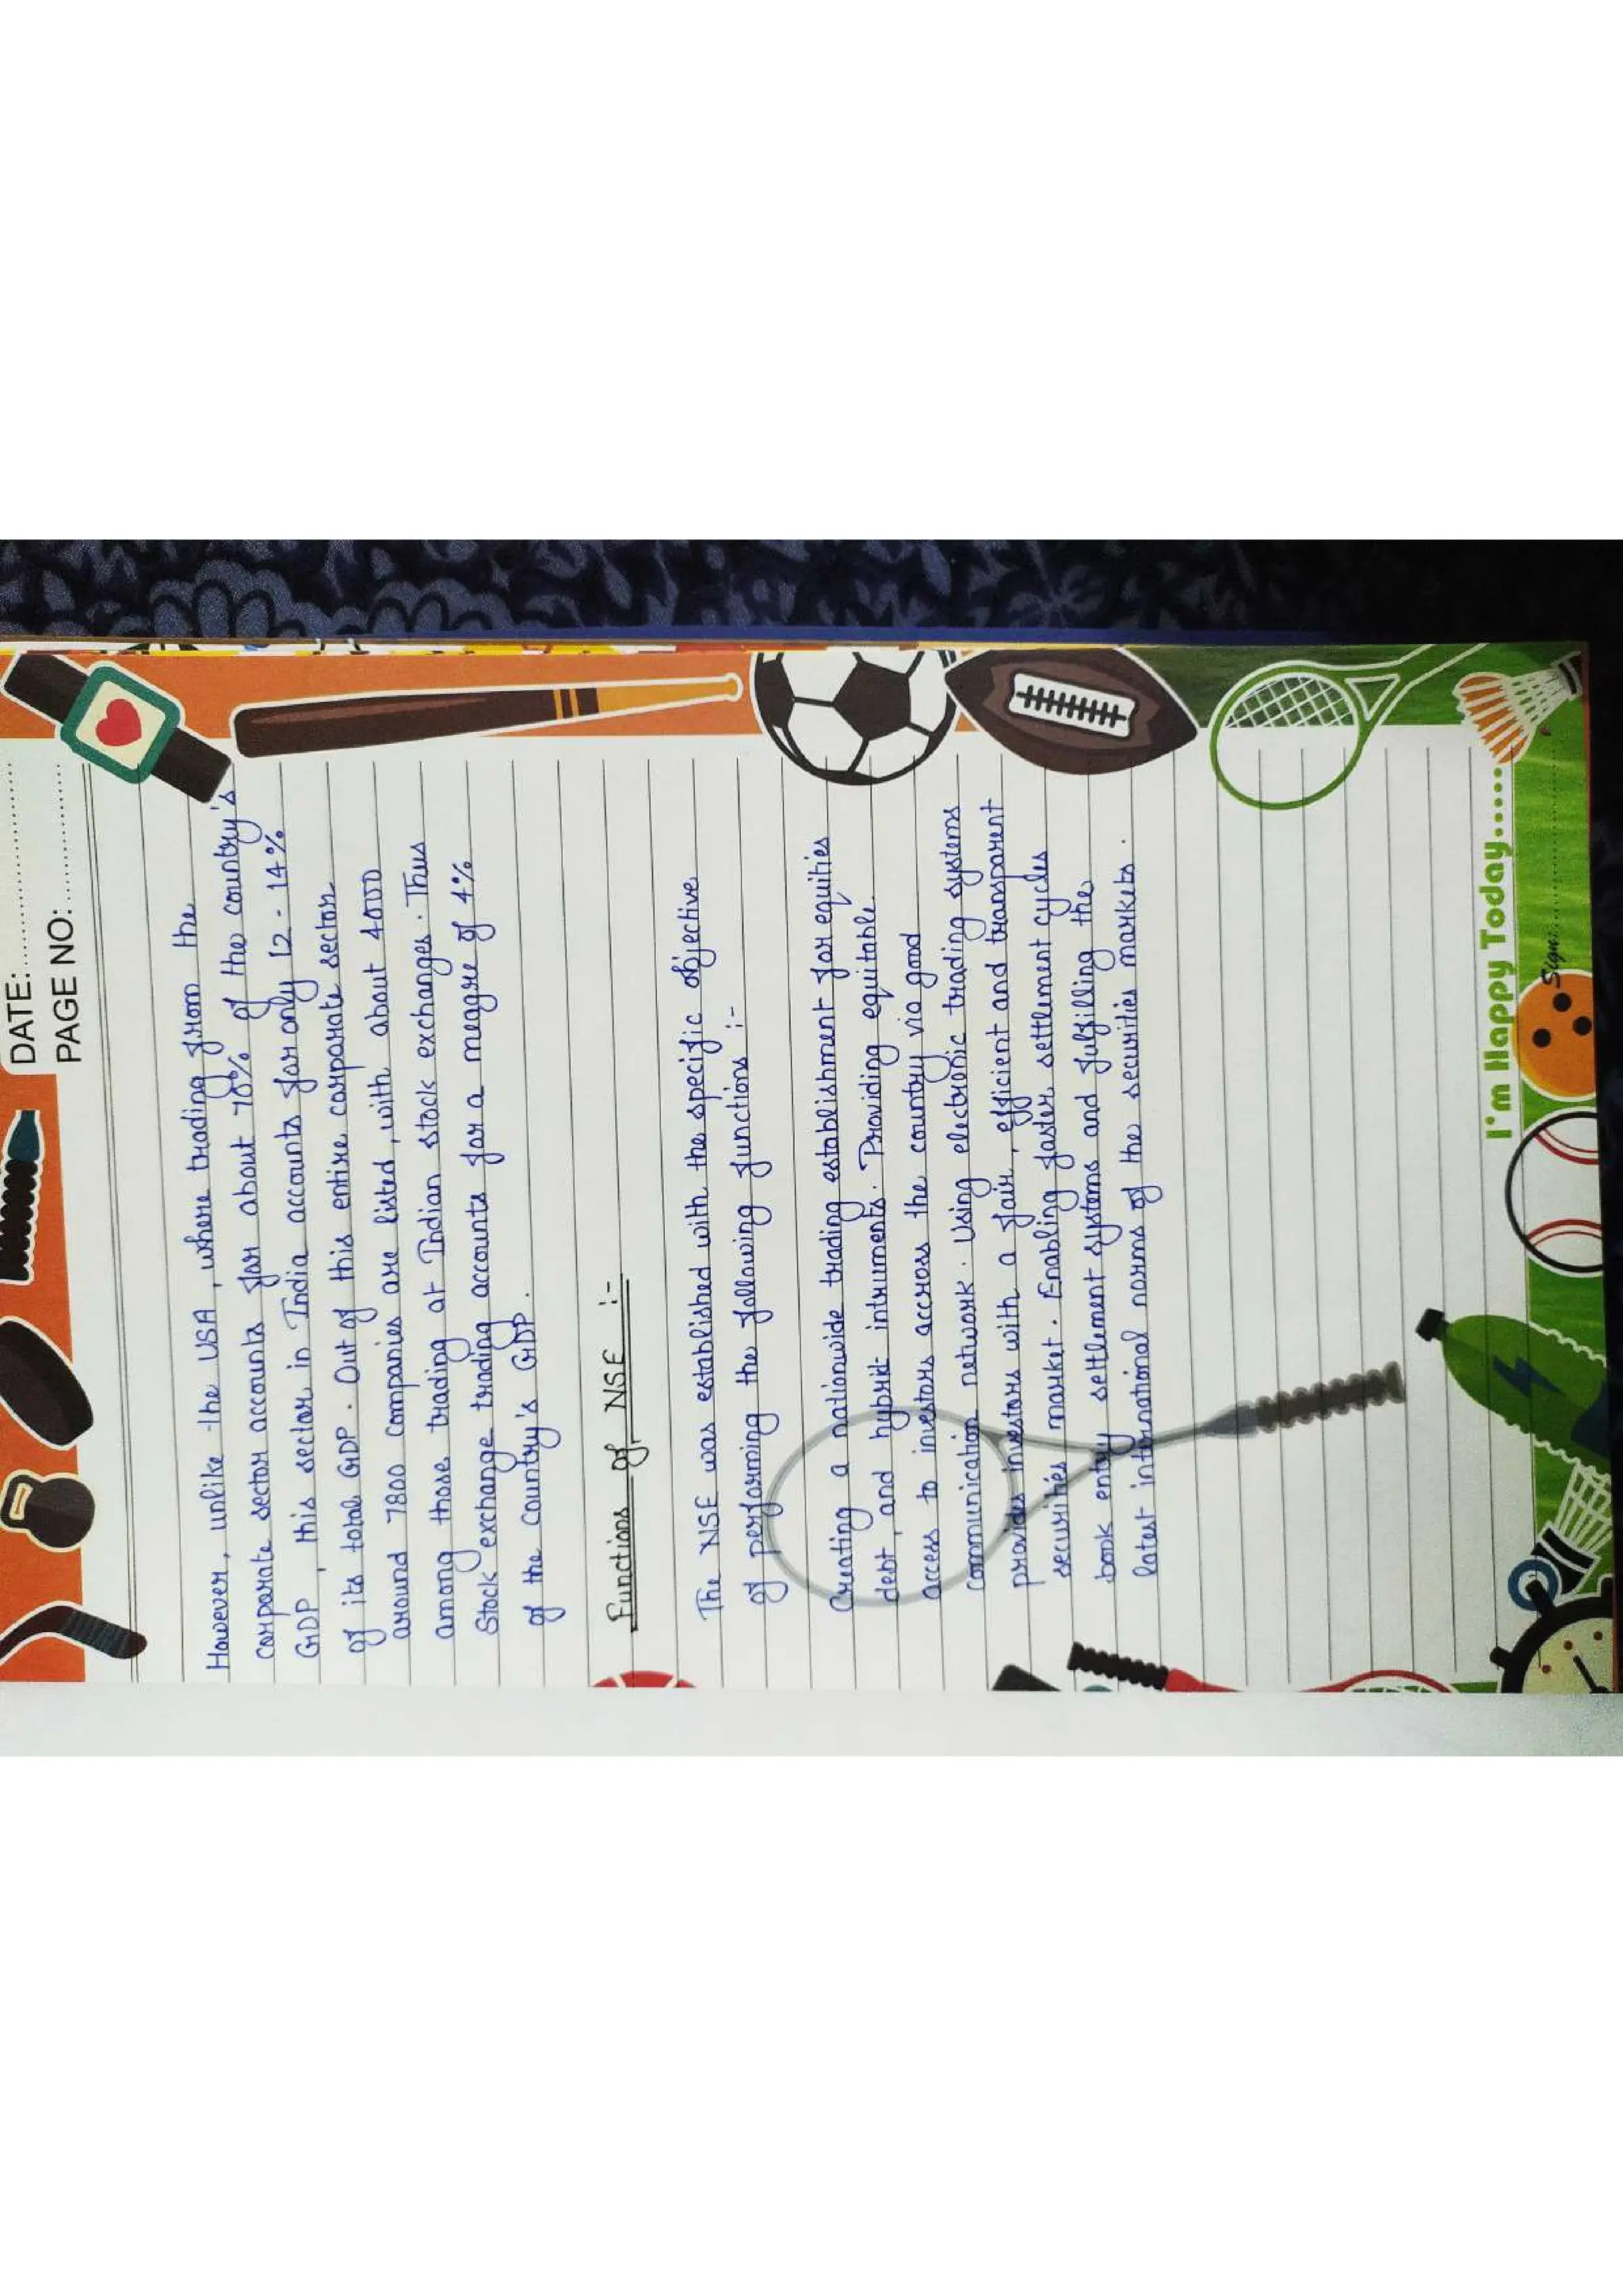 DATE:
PAGE NO:
However, unlike the USA, where trading from the
corporate sector accounts for about 70% of the country's
GDP, this sector in India accounts for only 12-14%
of its total GDP. Out of this entire corporate sector
around 7800 companies are listed, with about 4000
among those trading at Indian stock exchanges. Thus
Stock exchange trading accounts for a meagre of 4%
of the country's GDP.
Functions of NSE :-
The NSE was established with the specific objective
of performing the following functions :-
Creating a nationwide trading establishment for equities
debt, and hybrid intruments. Providing equitable
access to investors accross the country via good
communication network. Using electronic trading systems
provides investors with a fair, efficient and transparent
securities market. Enabling faster settlement cycles
book entry settlement systems and fulfilling the
latest international norms of the securities markets.
I'm Happy Today.....
Sign: